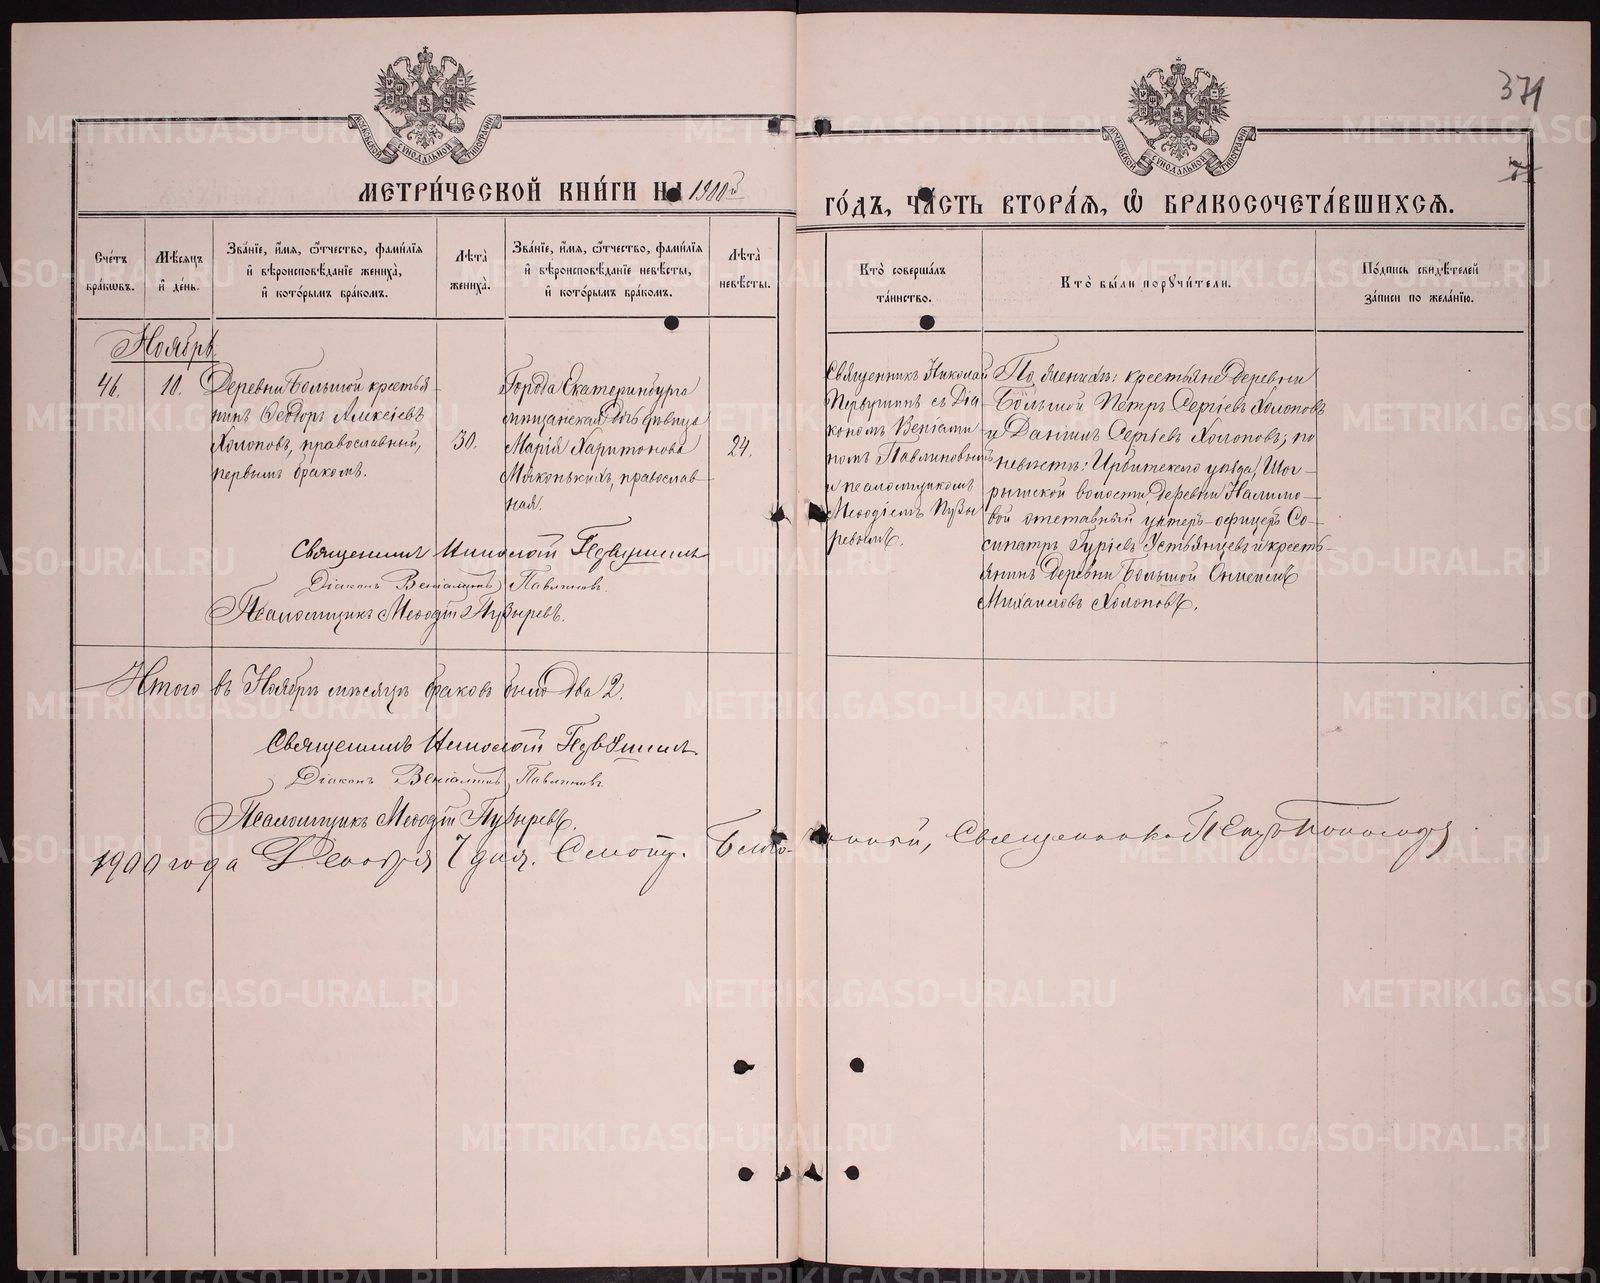 371
МОСКОВСКОЙ СѴНОДАЛЬНОЙ ТИПОГРАФІИ
МОСКОВСКОЙ СѴНОДАЛЬНОЙ ТИПОГРАФІИ
МЕТРИ́ЧЕСКОЙ КНИ́ГИ НА 1900й
ГО́ДЪ, ЧА́СТЬ ВТОРА́Я, Ѡ҆ БРАКОСОЧЕТА́ВШИХСЯ.
Сче́тъ бра́кѡвъ.
Мѣ́сяцъ и҆ де́нь.
Зва́нїе, и҆́мя, ѻ҆́тчество, фами́лїя и҆ вѣроисповѣ́данїе жениха̀, и҆ кото́рымъ бра́комъ.
Лѣ́та жениха̀.
Зва́нїе, и҆́мя, ѻ҆́тчество, фами́лїя и҆ вѣроисповѣ́данїе невѣ́сты, и҆ кото́рымъ бра́комъ.
Лѣ́та невѣ́сты.
Кто̀ соверша́лъ та́инство.
Кто̀ бы́ли пор󠁵ꙋчи́тели.
По́дпись свидѣ́телей за́писи по жела́нїю.
Ноябрь
46.
10.
Деревни Большой крестья-
нинъ Ѳеодоръ Алексіевъ
Холоповъ, православный,
первымъ бракомъ.
30.
Города Екатеринбурга
мѣщанская дѣвица
Марія Харитонова
Мяконькихъ, православ-
ная.
24.
Священникъ Николай
Первушинъ съ Діа-
кономъ Веніами-
номъ Павлиновымъ
и псаломщикомъ
Меѳодіемъ Пузы-
ревымъ.
По женихѣ: крестьяне деревни
Большой Петръ Сергіевъ Холоповъ
и Даніилъ Сергіевъ Холоповъ; по
невѣстѣ: Ирбитскаго уѣзда, Шог-
рышской волости, деревни Налимо-
вой отставный унтеръ-офицеръ Со-
сипатръ Гуріевъ Устьянцевъ и кресть-
янинъ деревни Большой
Михаиловъ Холоповъ.
Священникъ Николай Первушинъ
Діаконъ Веніаминъ Павлиновъ.
Псаломщикъ Меѳодій Пузыревъ.
Итого въ Ноябрѣ мѣсяцѣ браковъ было два 2.
Священникъ Николай Первушинъ
Діаконъ Веніаминъ Павлиновъ
Псаломщикъ Меѳодій Пузыревъ.
1900 года Декабря 7 дня. Смотр. Благо-чинный, Священникъ Петръ
METRIKI.GASO-URAL.RU